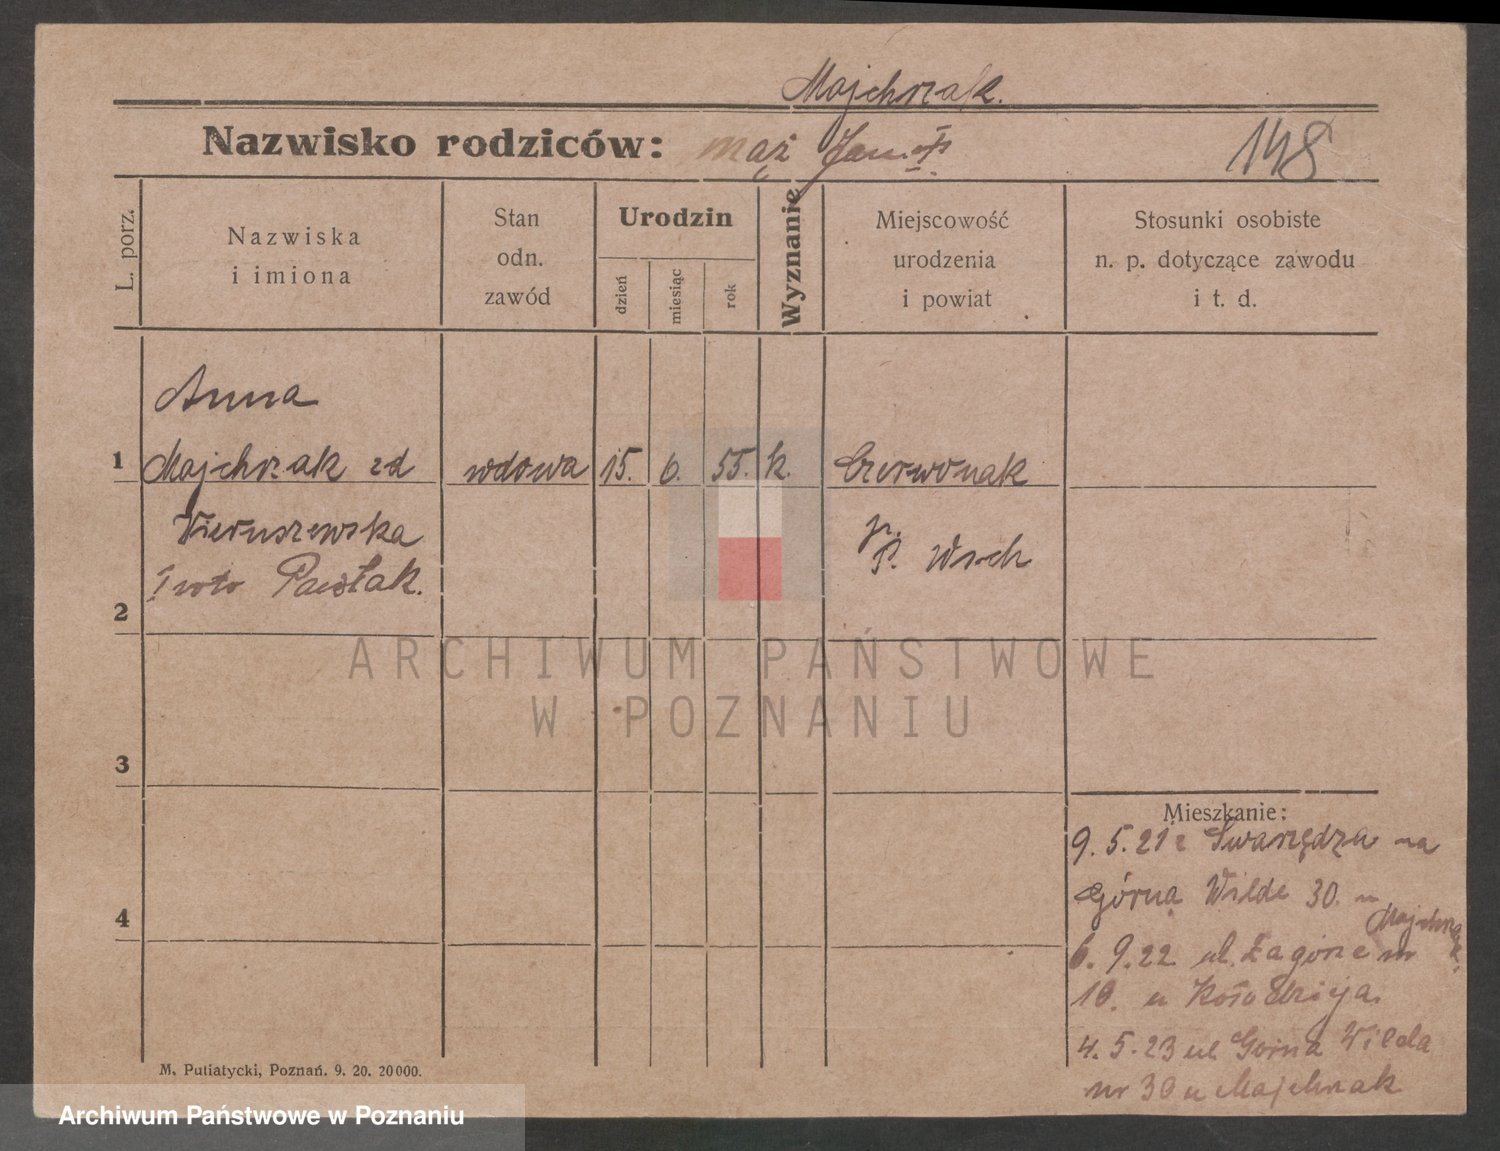 Majchrzak.
Nazwisko rodziców: mąż
148
L. porz.
Nazwiska
i imiona
Stan
odn.
zawód
Urodzin
dzień
miesiąc
rok
Wyznanie
Miejscowość
urodzenia
i powiat
Stosunki osobiste
n. p. dotyczące zawodu
i t. d.
Anna
1 Majchrzak zd wdowa 15. 6. 55. k. Czerwonak
Wieruszewska
p. P. Wsch
I voto Pawlak.
2
ARCHIWUM PAŃSTWOWE
W POZNANIU
3
Mieszkanie:
9. 5. 21 z Swarzędza na
Górna Wilde 30. u
Majchrzak.
4
6. 9. 22 ul. Zagórze nr
10. u
4. 5. 23 ul Gorna Wilda
nr 30 u Majchrzak
M. Putiatycki, Poznań. 9. 20. 20000.
Archiwum Państwowe w Poznaniu